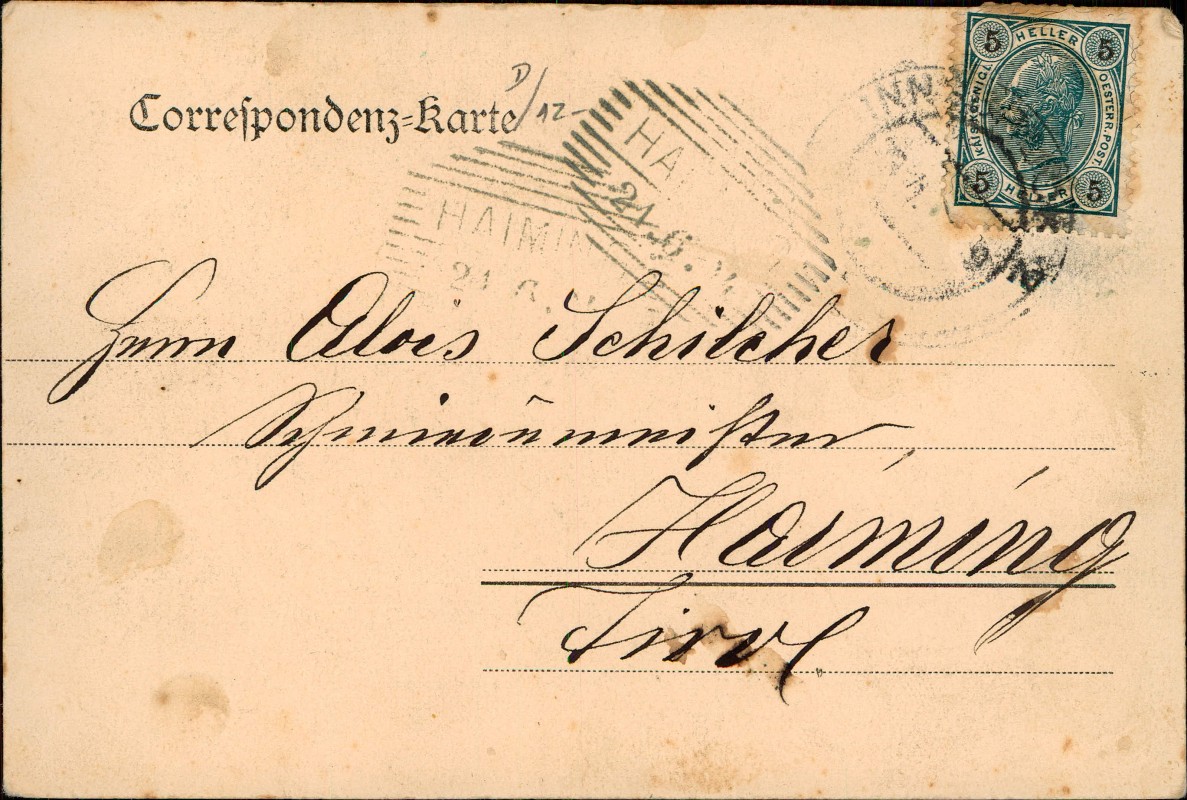 Correspondenz-Karte
D/12-
5 HELLER 5
KAIS. KOENIG.
OESTERR. POST.
5 HELLER 5
INN
HAIMIN
21. 6.
HAI
21. 6.
Herrn Alois Schilcher
Haiming
Tirol